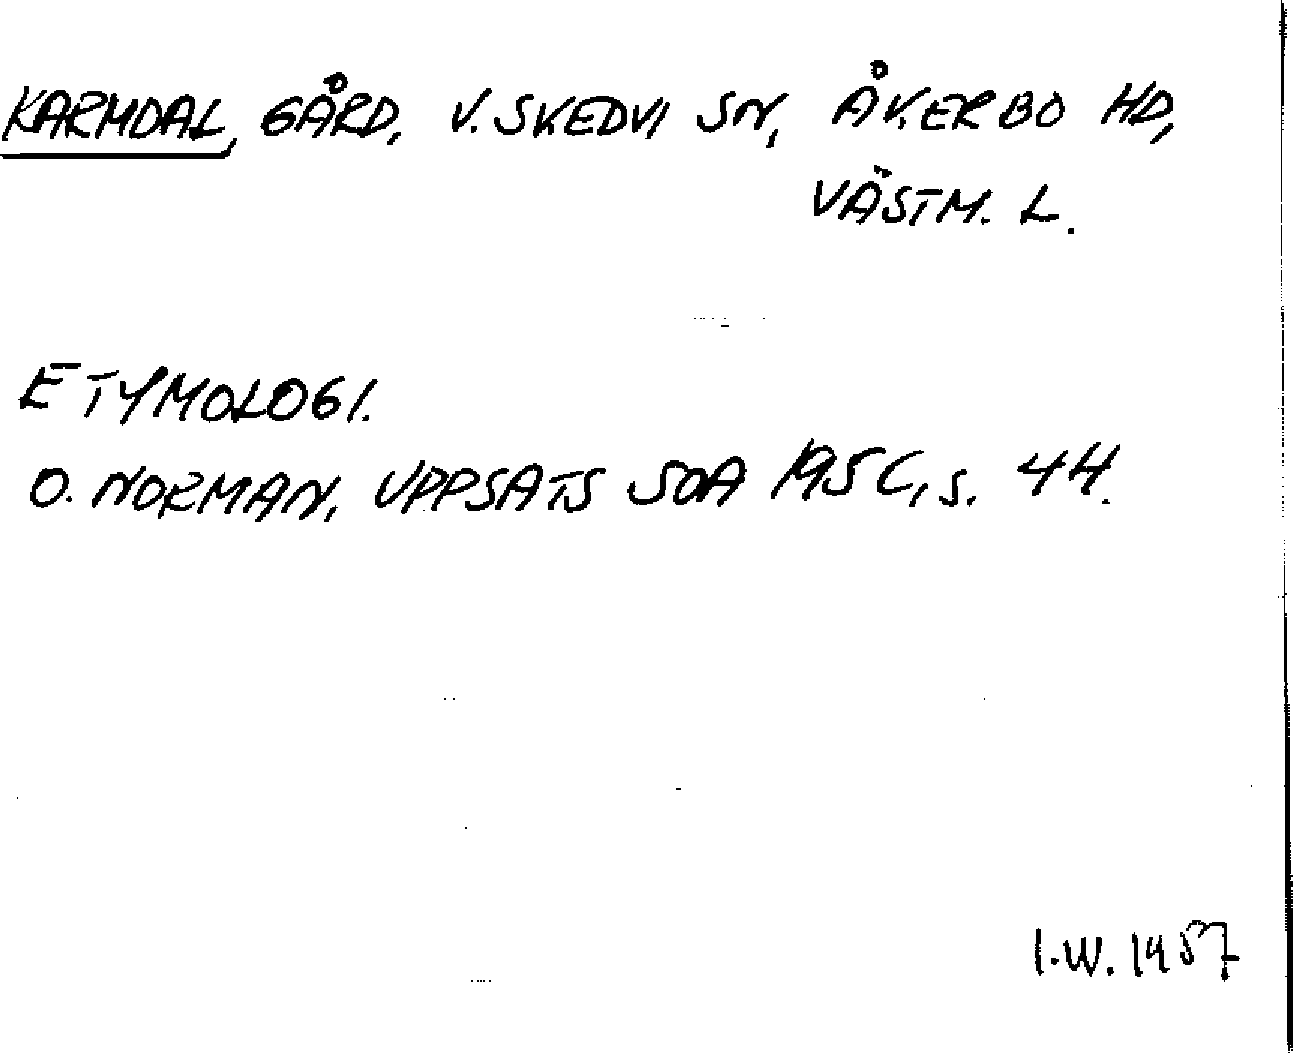 KARMDAL, GÅRD, V. SKEDVI SN, ÅKERBO HD,
VÄSTM. L.
ETYMOLOGI.
O. NORMAN, UPPSATS SOA s. 44.
I.W. 1957